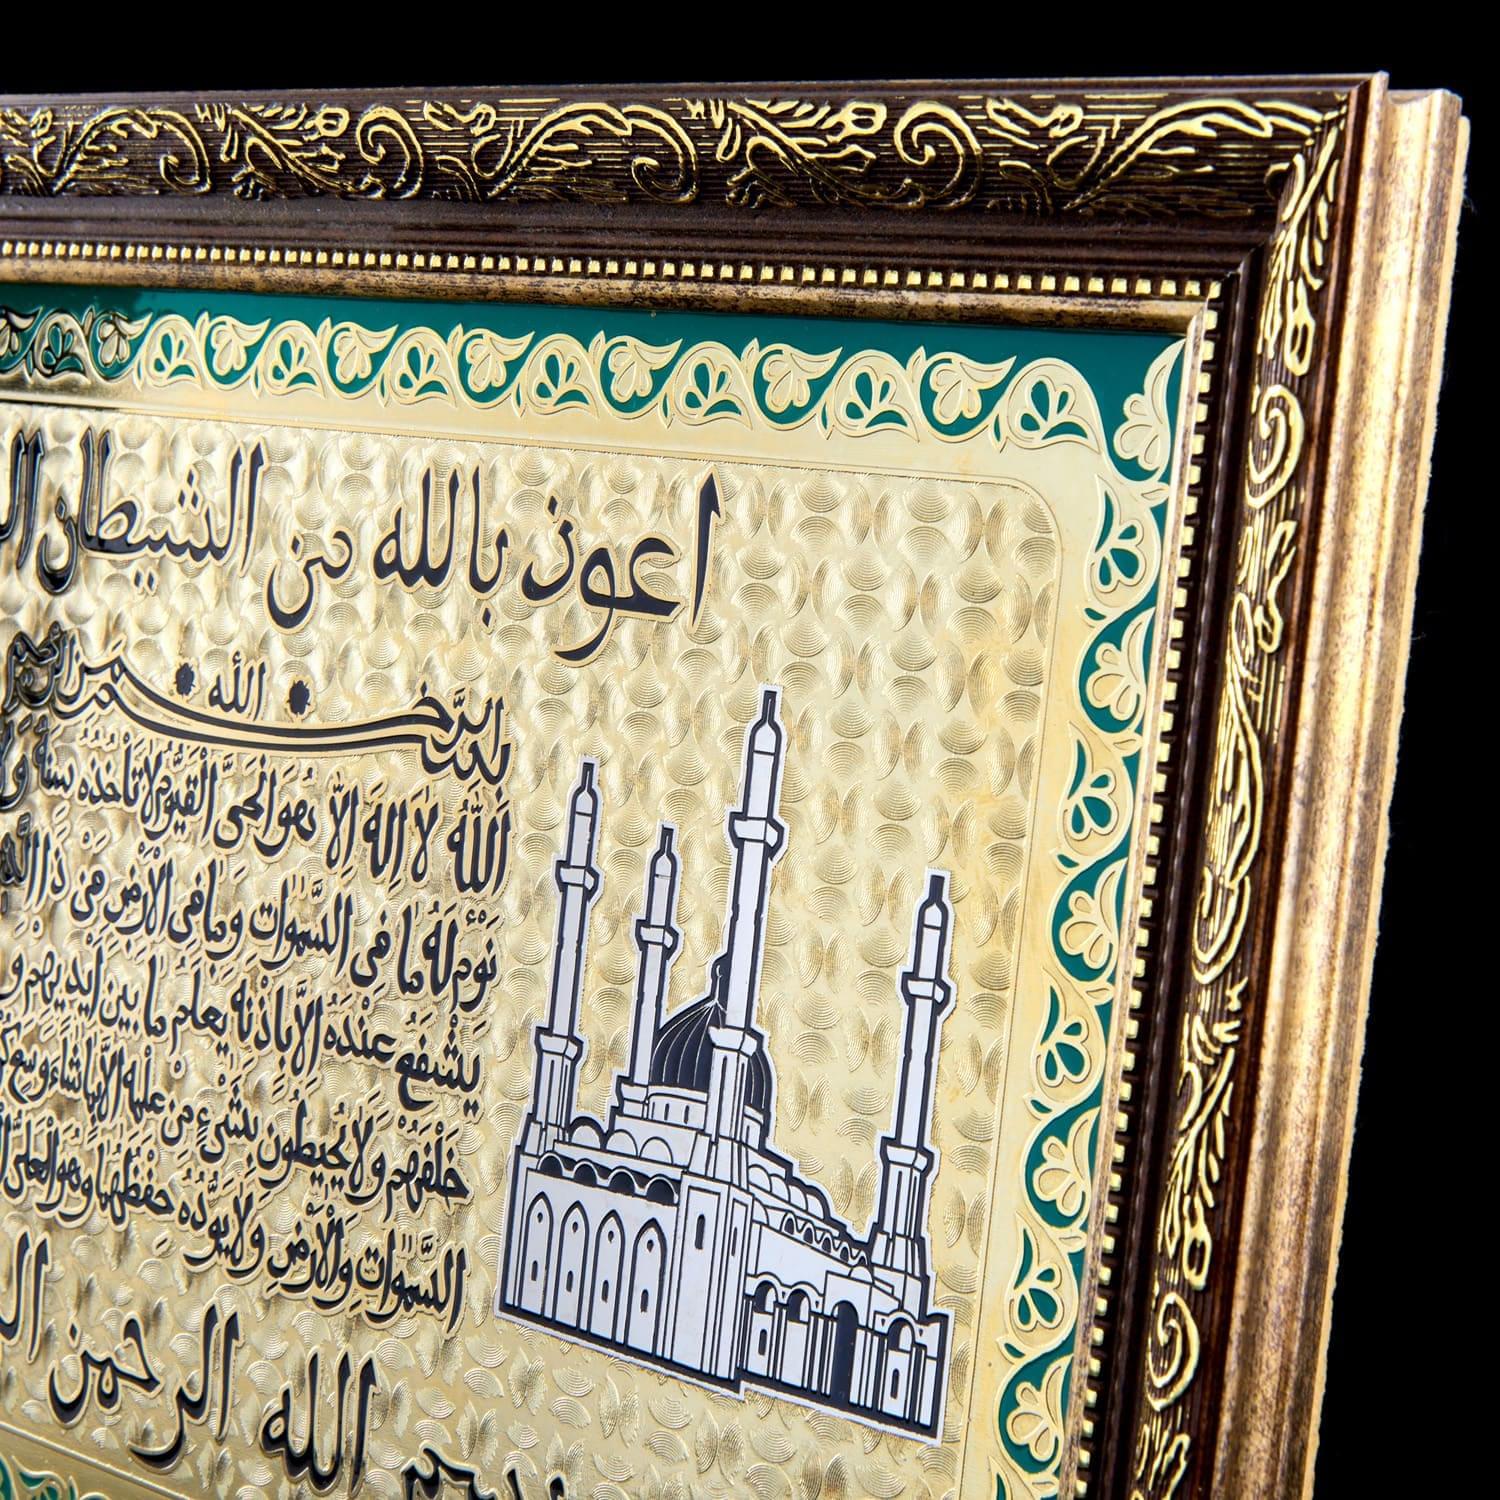 اعوذ بالله من الشيطان
بسم الله الرحمن الرحيم
اَللّٰهُ لَا اِلٰهَ اِلَّا هُوَ الْحَيُّ الْقَيُّومُ لَا تَأْخُذُهُ سِنَةٌ وَلَا
نَوْمٌ لَهُ مَا فِى السَّمٰوَاتِ وَمَا فِى الْاَرْضِ مَنْ ذَا الَّذِى
يَشْفَعُ عِنْدَهُ اِلَّا بِاِذْنِهِ يَعْلَمُ مَا بَيْنَ اَيْدِيهِمْ وَ
خَلْفَهُمْ وَلَا يُحِيطُونَ بِشَىْءٍ مِنْ عِلْمِهِ اِلَّا بِمَا شَاءَ وَسِعَ
السَّمٰوَاتِ وَالْاَرْضَ وَلَا يَؤُدُهُ حِفْظُهُمَا وَهُوَ الْعَلِىُّ
الله الرحمن